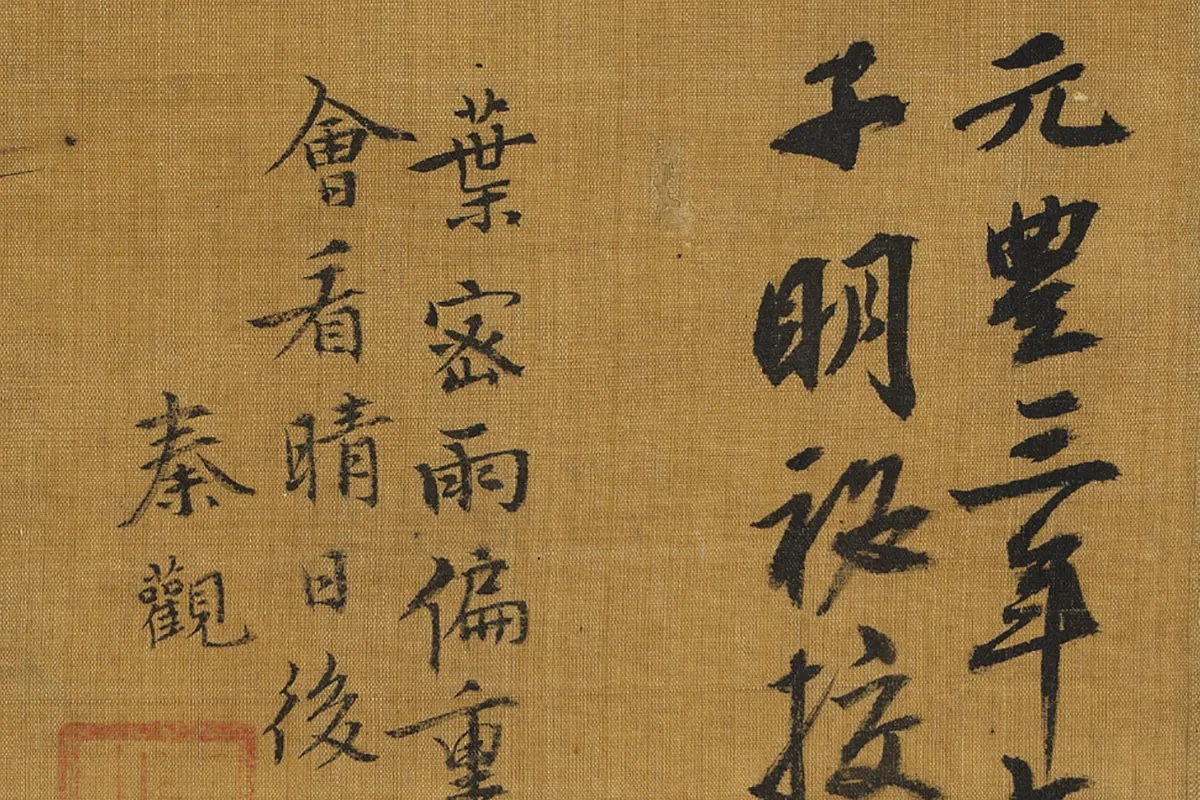 元豐三年
子明祕校
葉密雨偏重
會看晴日後
秦觀